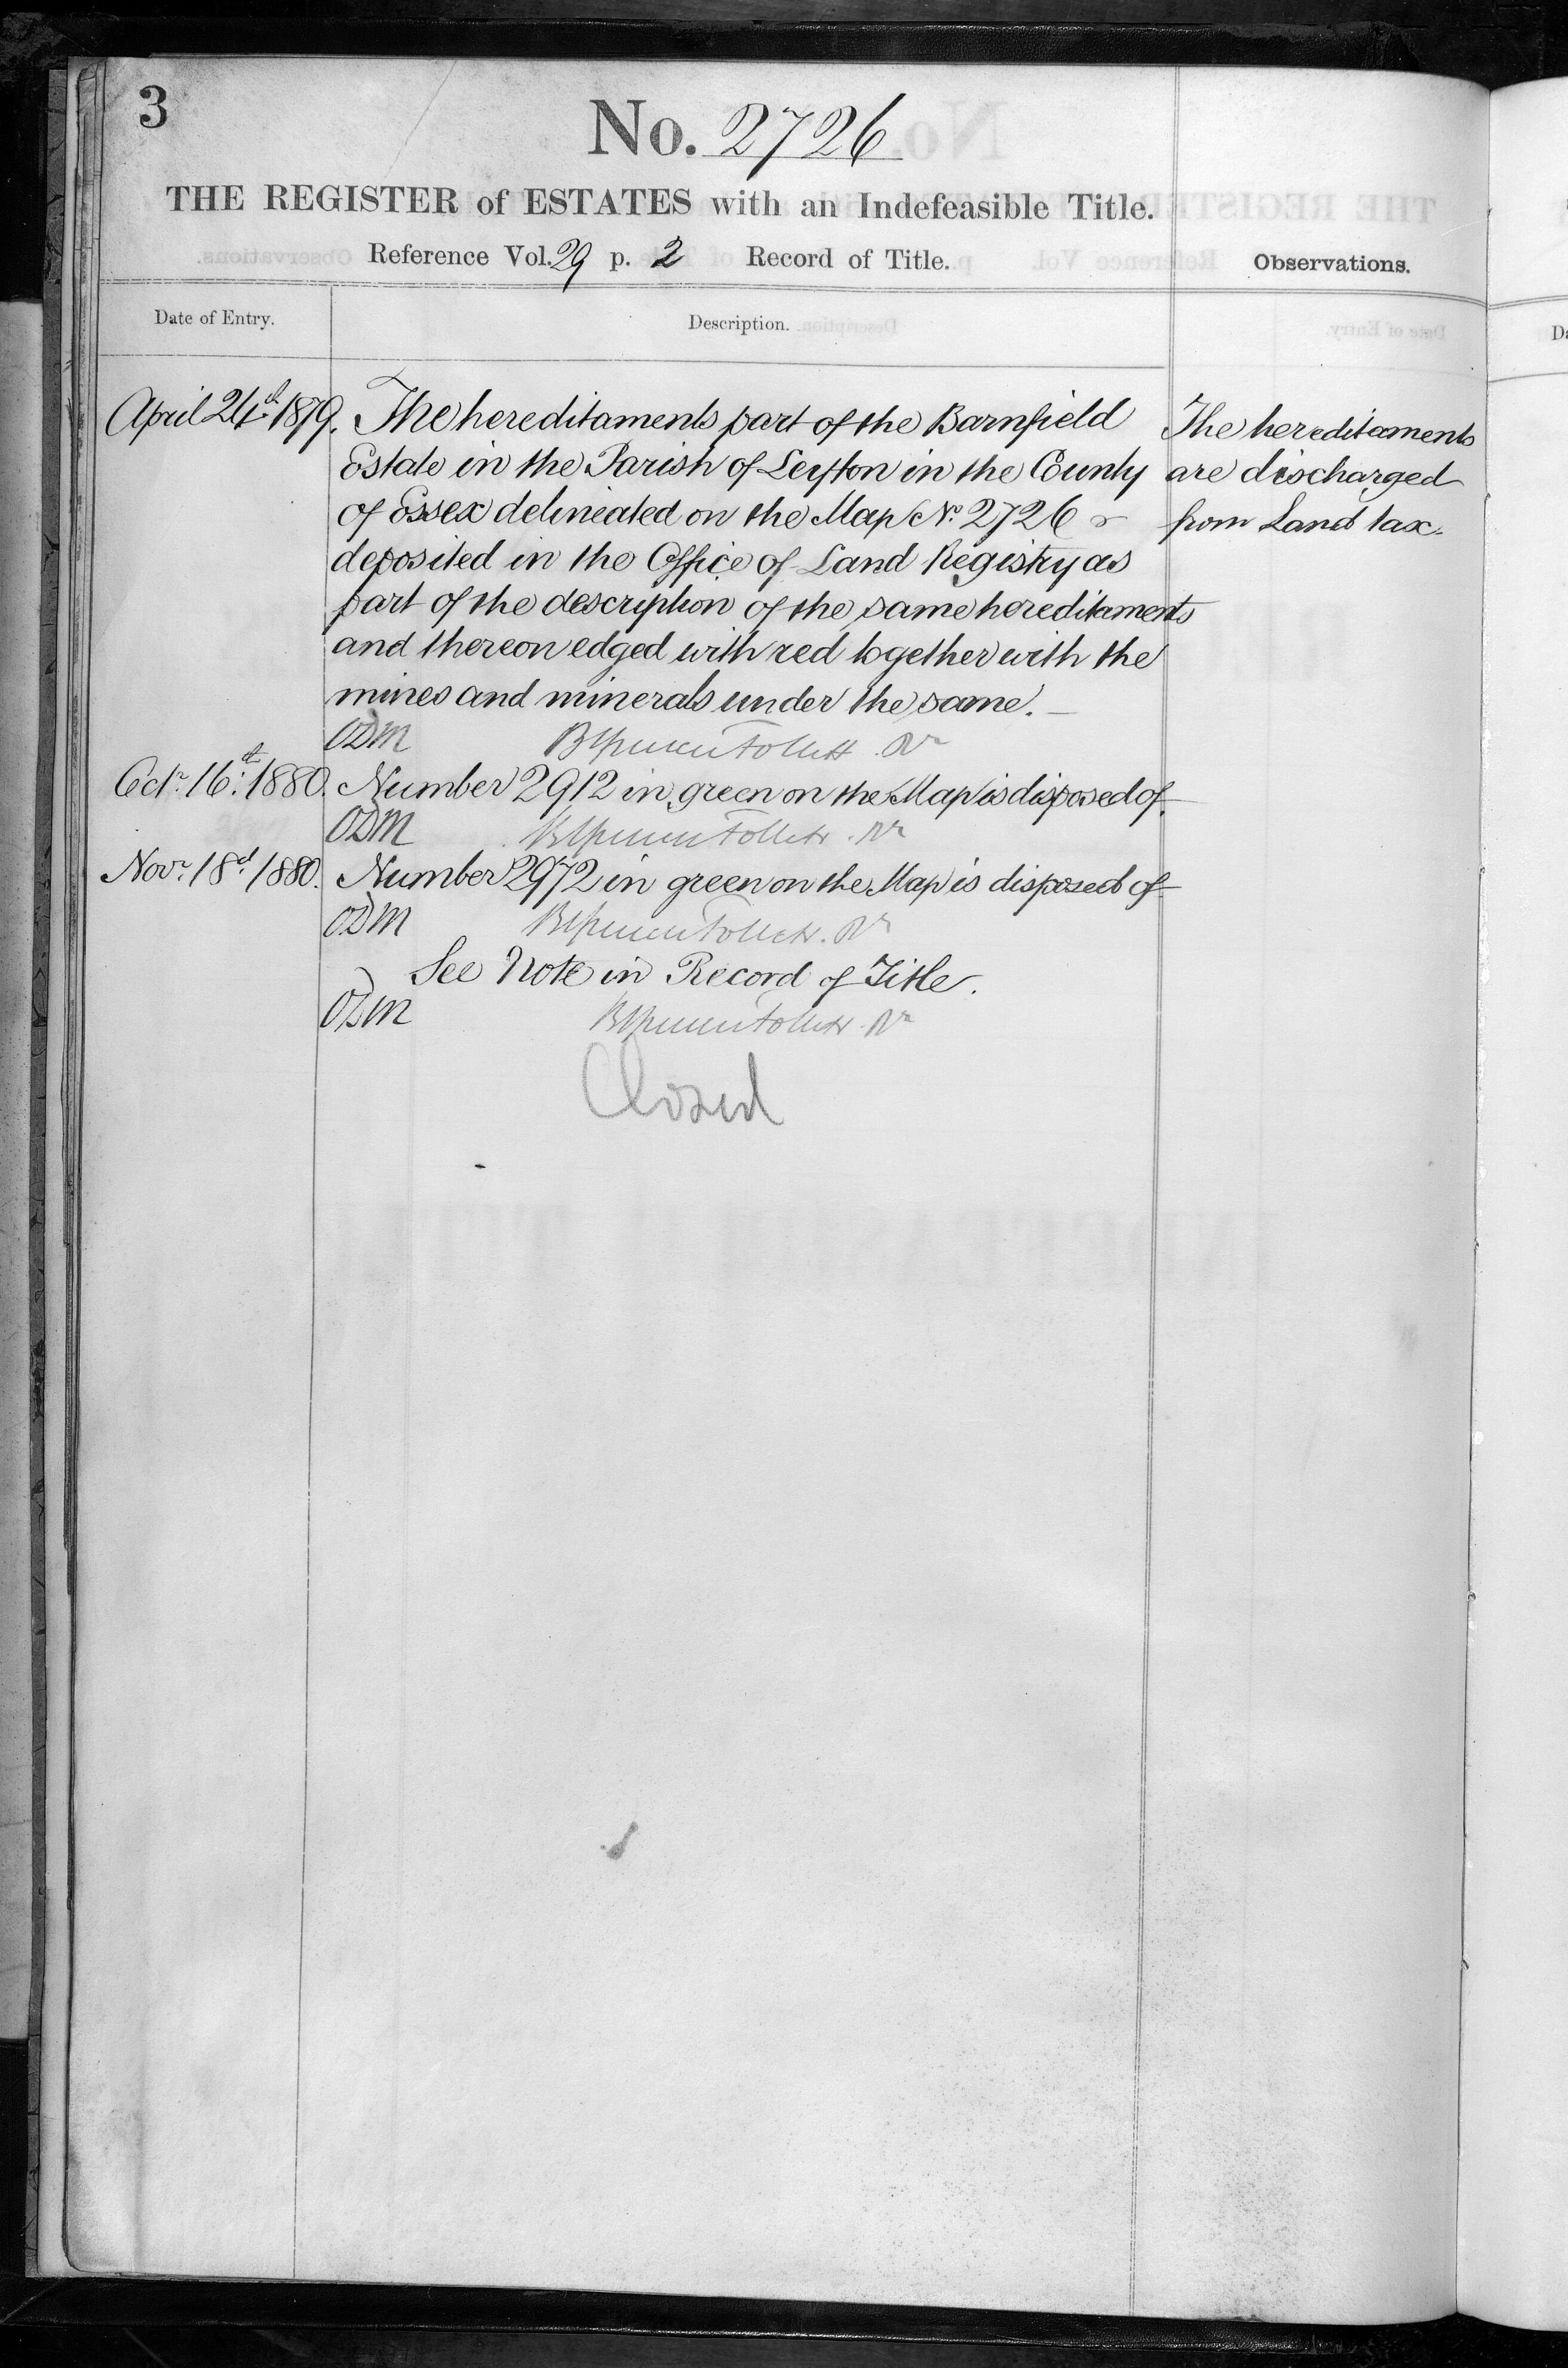 3
No. 2726
THE REGISTER of ESTATES with an Indefeasible Title.
Reference Vol. 29 p. 2 Record of Title.
Observations.
Date of Entry.
Description.
April 24th 1879. The hereditaments part of the Barnfield
Estate in the Parish of Leyton in the County
of Essex delineated on the Map No. 2726
deposited in the Office of Land Registry as
part of the description of the same hereditaments
and thereon edged with red together with the
mines and minerals under the same.
The hereditaments
are discharged
from Land tax.
ODM
Octr. 16th 1880. Number 2912 in green on the Map is disposed of.
ODM
Novr. 18th 1880. Number 2972 in green on the Map is disposed of
ODM
See Note in Record of Title.
ODM
Closed